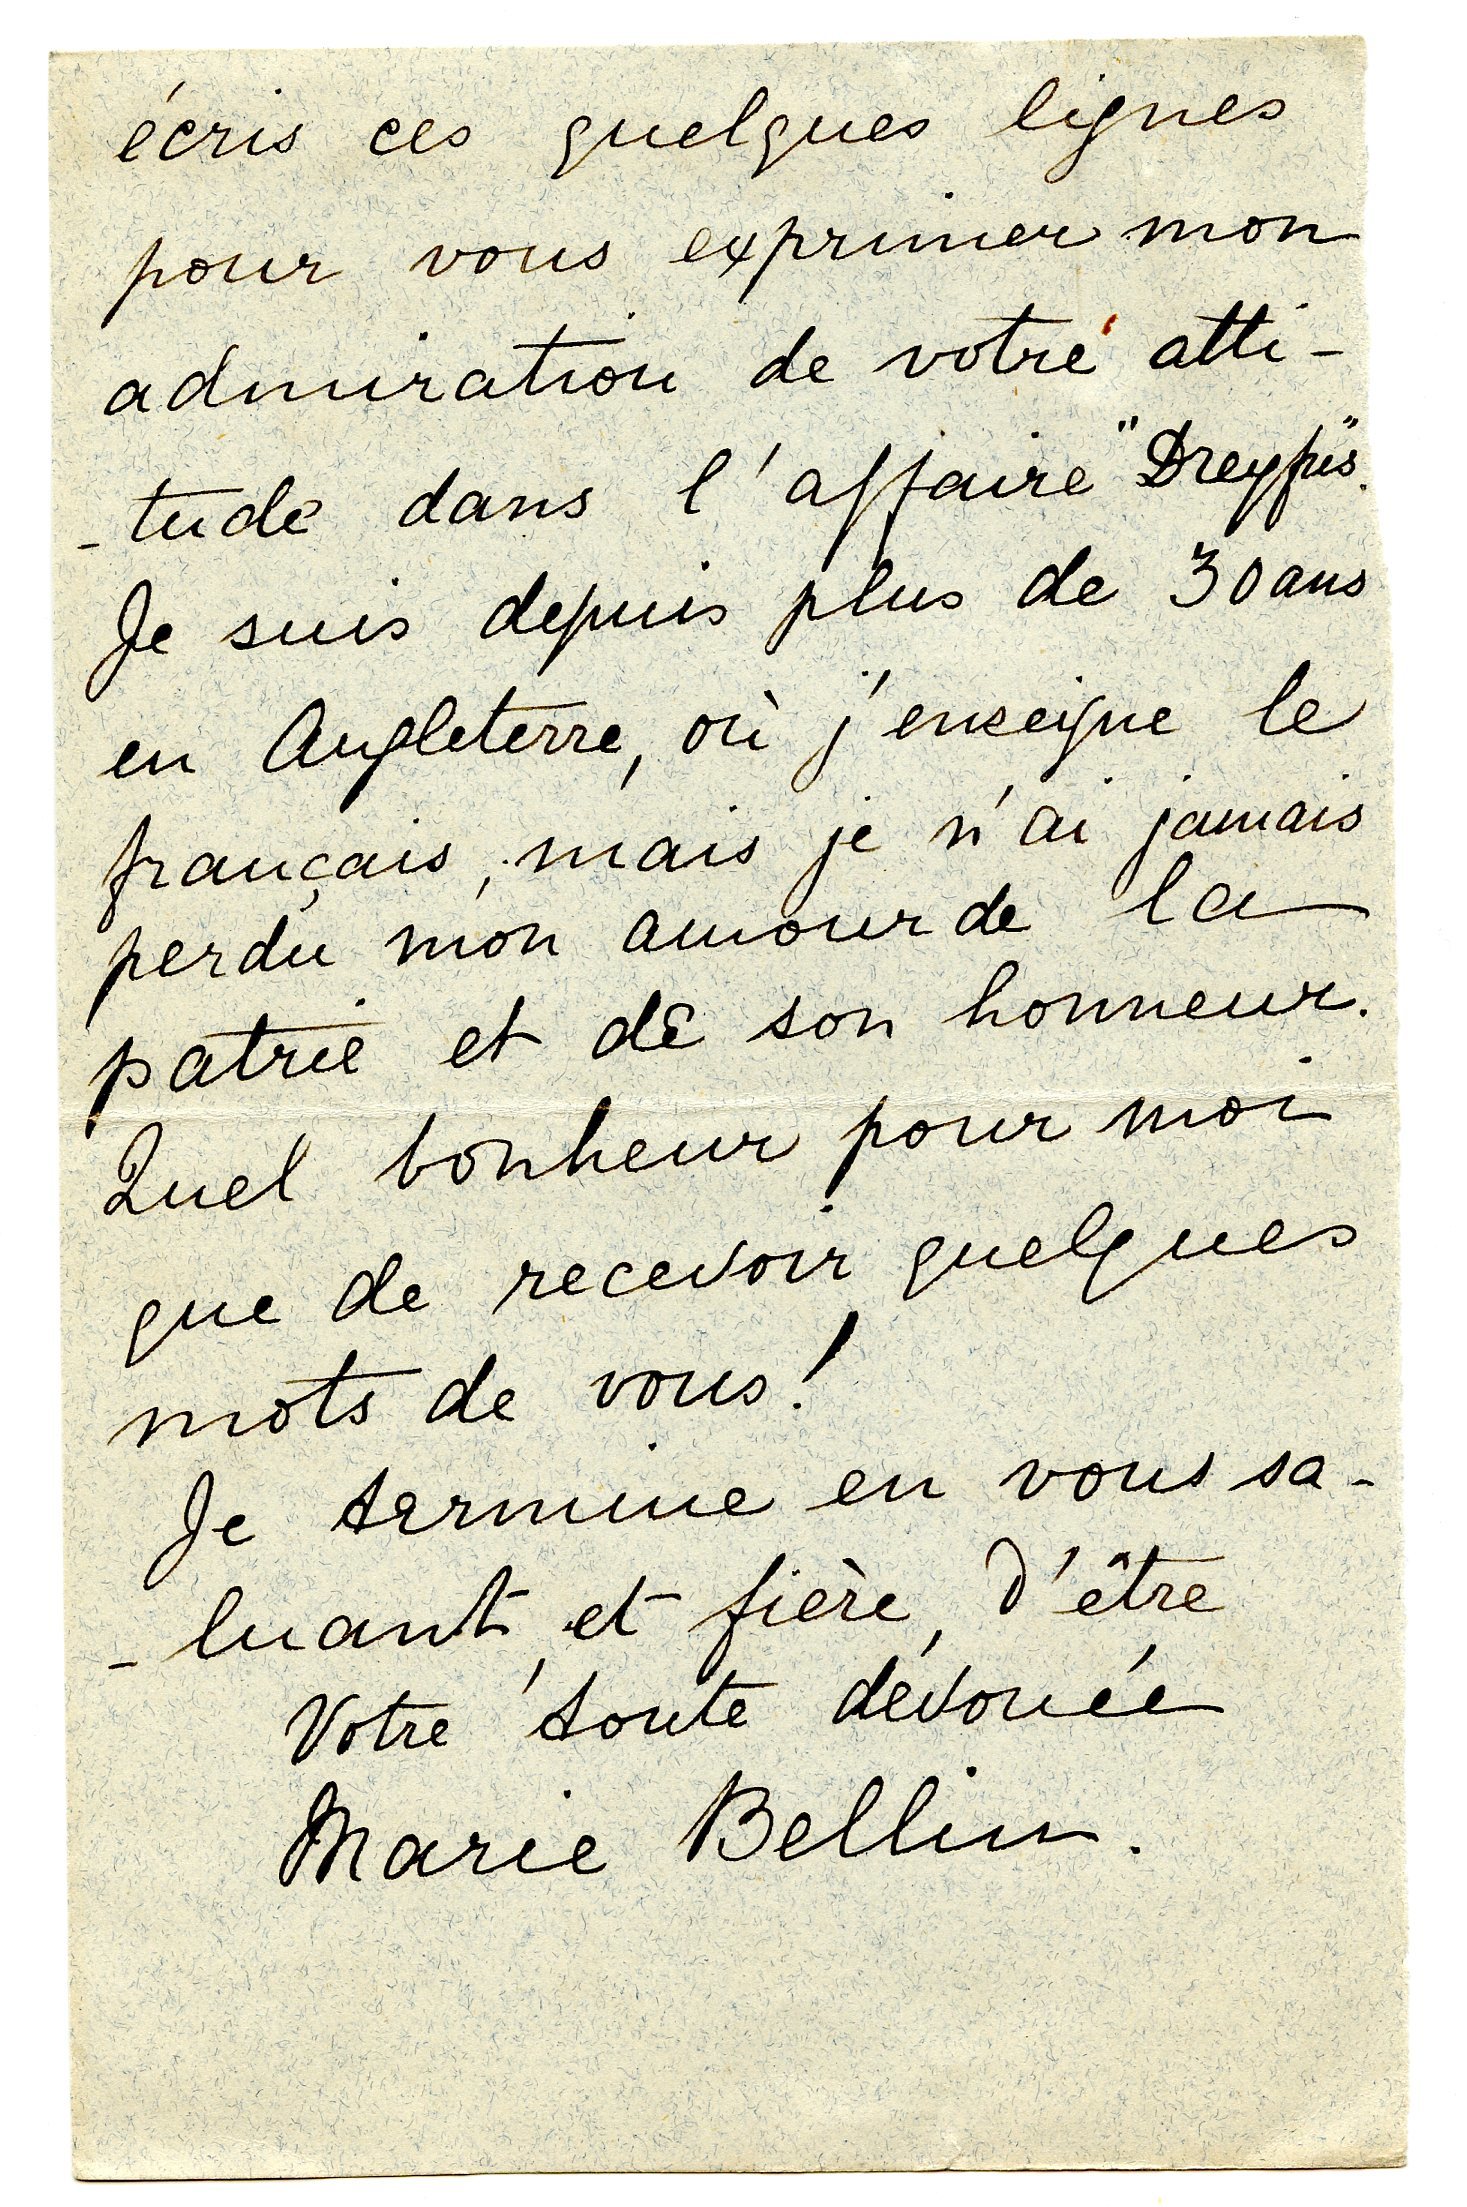 écris ces quelques lignes
pour vous exprimer mon
admiration de votre atti-
-tude dans l'affaire "Dreyfus".
Je suis depuis plus de 30 ans
en Angleterre, où j'enseigne le
français, mais je n'ai jamais
perdu mon amour de la
patrie et de son honneur.
Quel bonheur pour moi
que de recevoir quelques
mots de vous!
Je termine en vous sa-
-luant, et fière, d'être
Votre toute dévouée
Marie Bellin.